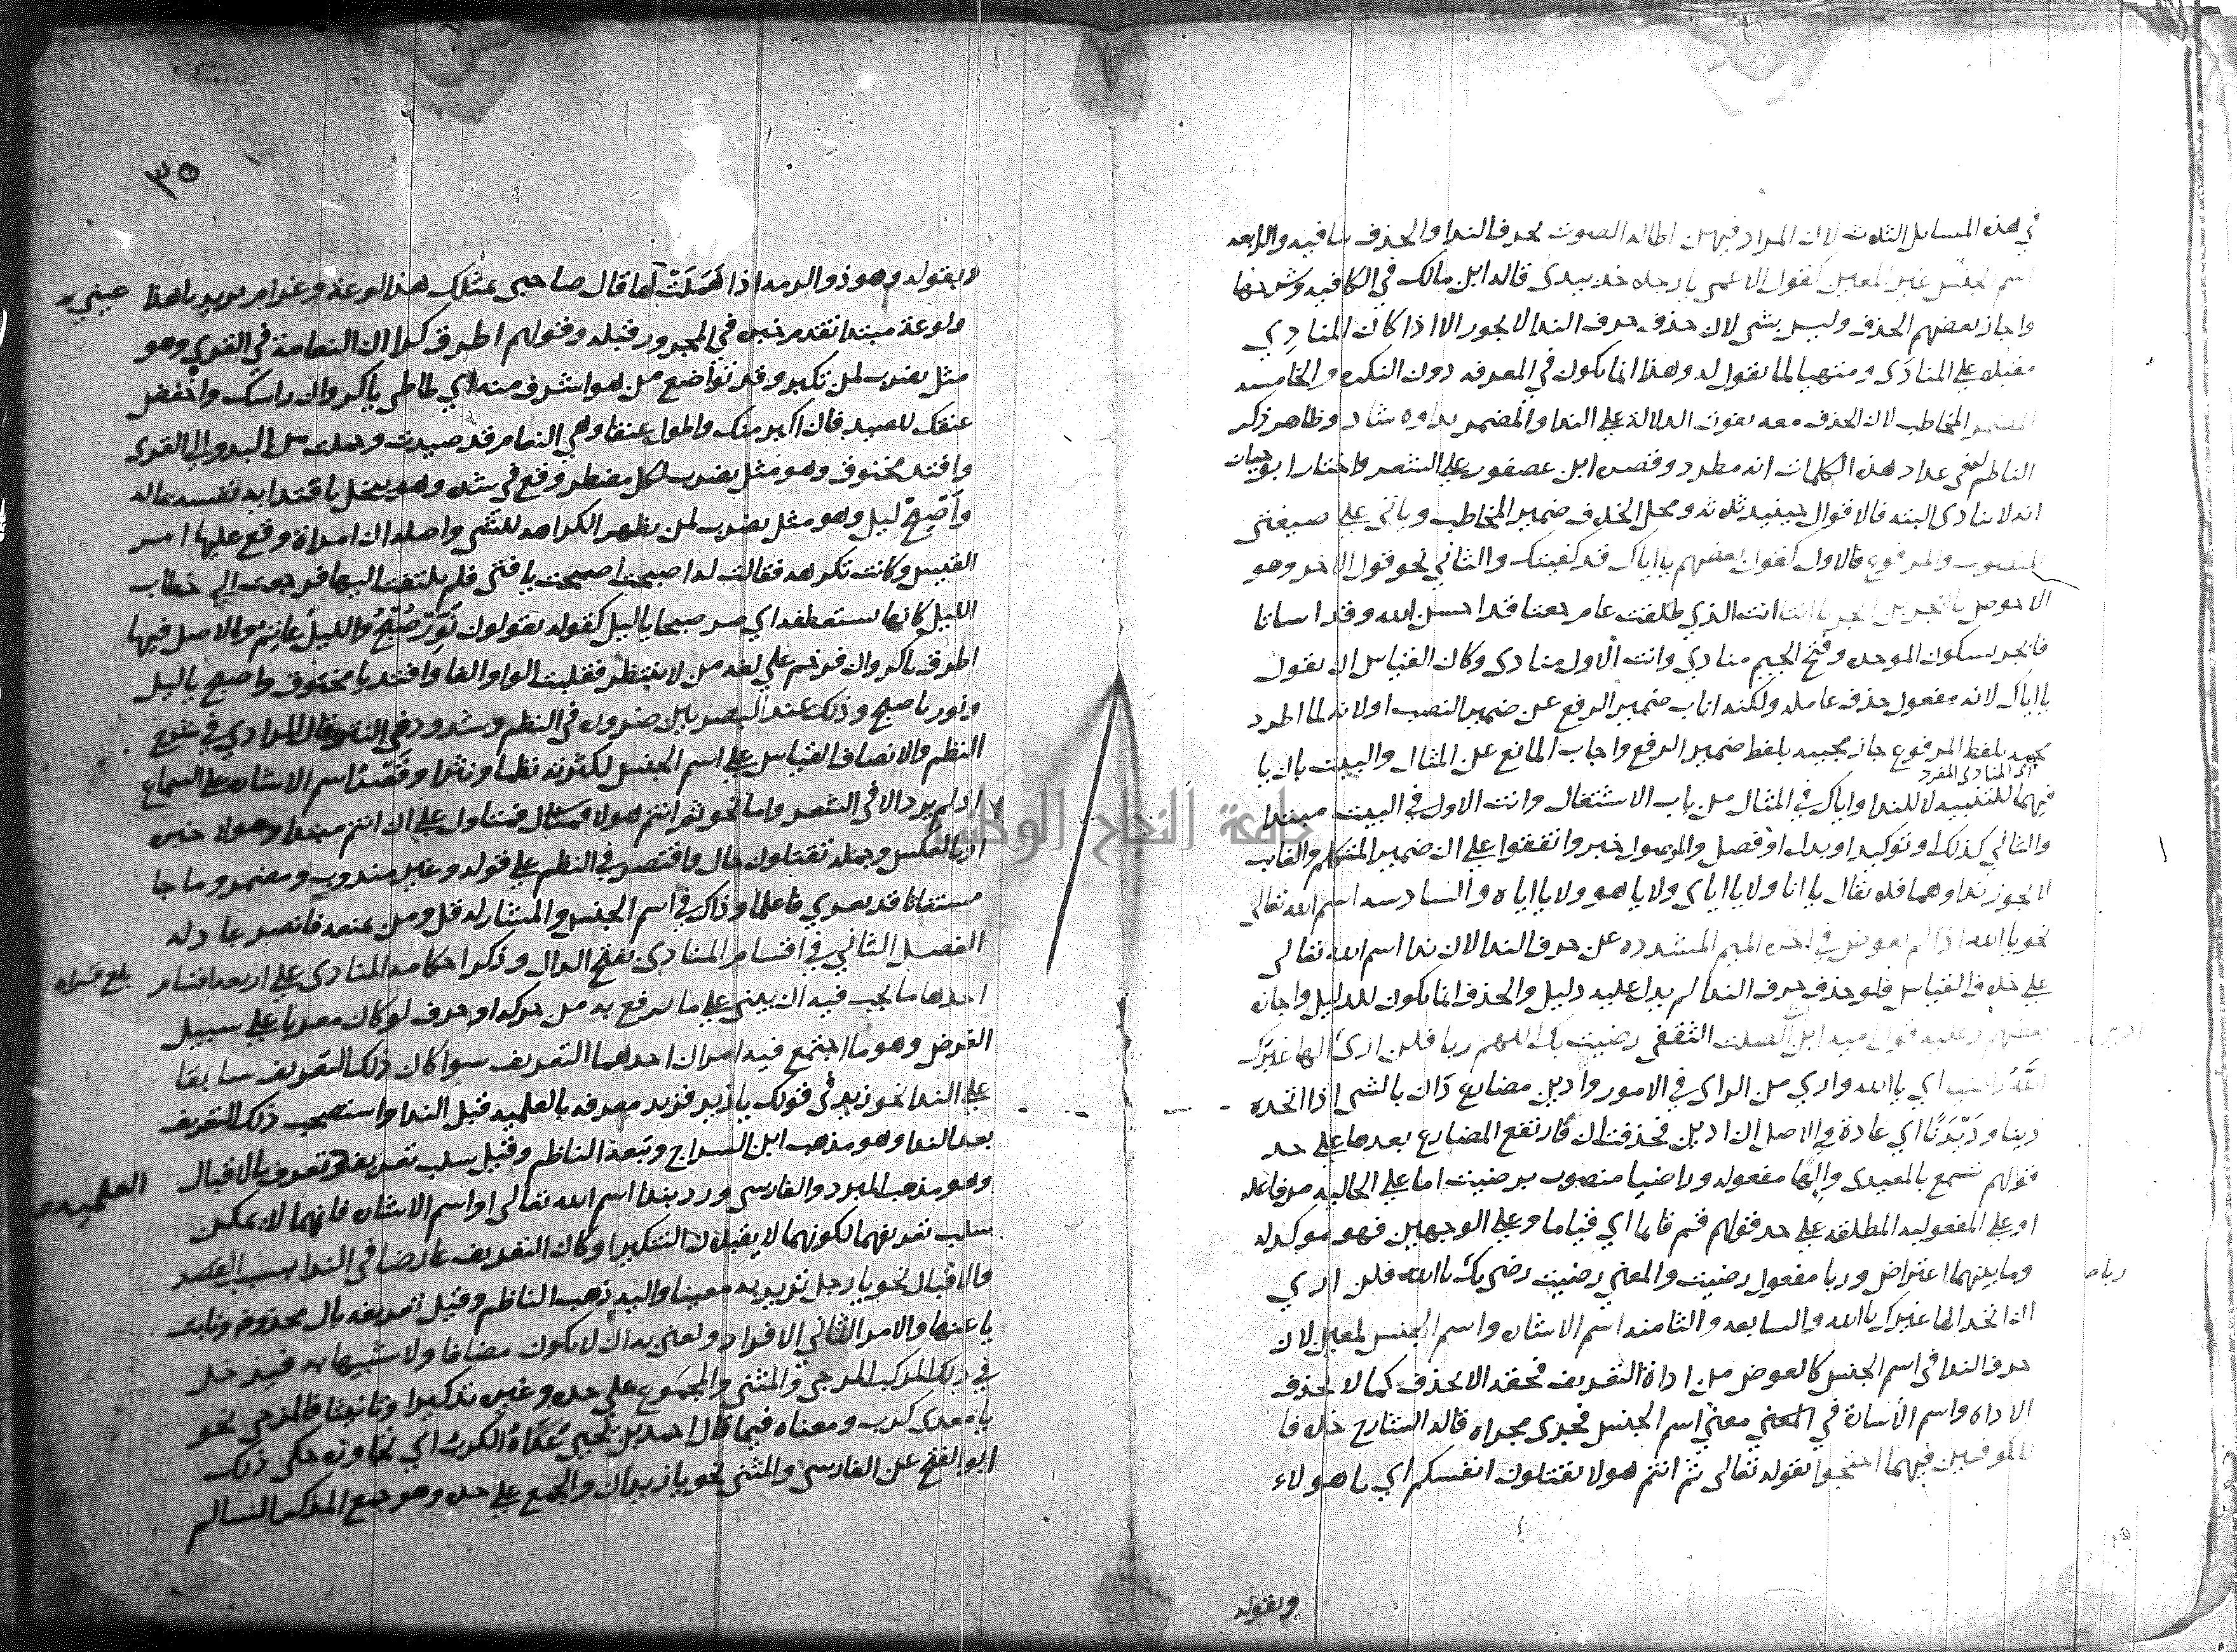 في هذه المسايل الثلاث لان المراد فيهن اطالة الصوت بحرف الندا والحذف ينافيه والرابعه
اسم الجنس غير المعين كقول الاعمى يا رجلا خذ بيدى قاله ابن مالك في الكافيه وشرحها
واجاز بعضهم الحذف وليس بشى لان حذف حرف الندا لا يجوز الا اذا كان المنادِي
مقبلا على المنادَى ومتهيا لما يقول له وهذا انما يكون في المعرفه دون النكره والخامسه
المضمر المخاطب لان الحذف معه يفوت الدلالة على الندا والمضمر نداوه شاذ وظاهر ذكر
الناظم لفى عداد هذه الكلمات انه مطرد وقصره ابن عصفور على الشعر واختار ابو حيان
انه لا ينادى البته فالاقوال حينيذ ثلاثه ومحل الخلاف ضمير المخاطب وياتى على صيغتى
المنصوب والمرفوع فالاول كقول بعضهم يا اياك قد كفيتك والثاني نحو قول الاخر وهو
الاحوص يا ابجر بن ابجر يا انتا انت الذي طلقت عام جعتا قد احسن الله وقد اساتا
فابجر بسكون الموحده وفتح الجيم منادي وانت الاول منادى وكان القياس ان يقول
يا اياك لانه مفعول حذف عامله ولكنه اناب ضمير الرفع عن ضمير النصب او لانه لما اطرد
مجيه بلفظ المرفوع جاز مجييه بلفظ ضمير الرفع واجاب المانع عن المثال والبيت بان يا
اي المنادي المفرد
فيهما للتنبيه لا للندا واياك في المثال من باب الاشتغال وانت الاول في البيت مبتدا
والثاني كذلك او توكيد او بدل او فصل والموصول خبر واتفقوا على ان ضمير المتكلم والغايب
لا يجوز نداوهما فلا يقال يا انا ولا يا اياى ولا يا هو ولا يا اياه والسادسه اسم الله تعالى
نحو يا الله اذا لم يعوض في اخره الميم المشدده عن حرف الندا لان ندا اسم الله تعالى
على خلاف القياس فلو حذف حرف الندا لم يدل عليه دليل والحذف انما يكون للدليل واجازه
بعضهم وعليه قول اميه ابن الصلت الثقفى رضيت بك اللهم ربا فلن ارى الها غيرك
اللهُ راضيا اي يا الله واري من الراي في الامور وادين مضارع دَان بالشى اذا اتخذه
دينا ودَيْدَنًا اي عادة والاصل ان ادين فحذفت ان فارتفع المضارع بعدها على حد
قولهم تسمع بالمعيدى والها مفعوله وراضيا منصوب برضيت اما على الحاليه من فاعله
او على المفعوليه المطلقه على حد قولهم قم قايما اي قياما وعلى الوجهين فهو موكد له
وما بينهما اعتراض وربا مفعول رضيت والمعني رضيت رضى بك يا الله فلن اري
ان اتخذ الها غيرك يا الله والسابعه والثامنه اسم الاشاره واسم الجنس لمعين لان
حرف الندا في اسم الجنس كالعوض من اداة التعريف فحقه الا يحذف كما لا تحذف
الاداه واسم الاشارة في المعني معنى اسم الجنس فجرى مجراه قاله الشارح خلافا
للكوفيين فيهما احتجوا بقوله تعالى ثم انتم هولا تقتلون انفسكم اي يا هولاء
وبقوله
٣٥
وبقوله وهو ذو الرمه اذا هَمَلَتْ لها قال صاحبى بمثلك هذا لوعة وغرام يريد يا هذا عيني
ولوعة مبتدا تقدم خبره في المجرور قبله وقولهم اطرق كرا ان النعامة في القري وهو
مثل يضرب لمن تكبر وقد تواضع من هو اشرف منه اي طاطى يا كروان راسك واخفض
عنقك للصيد فان اكبر منك واطول عنقا وهي النعام قد صيدت وحملت من البدو الى القرى
وافتد مخنوق وهو مثل يضرب لكل مضطر وقع في شده وهو يبخل بافتدايه نفسه بماله
واَصْبِحْ ليل وهو مثل يضرب لمن يظهر الكراهه للشى واصله ان امراة وقع عليها امر
القيس وكانت تكرهه فقالت له اصبحت اصبحت يا فتى فلم يلتفت اليها فرجعت الى خطاب
الليل كانها تستعطفه اي صر صبحا يا ليل كقوله يقولون نَوِّرْ صُبْحُ والليل عاتم والاصل فيها
اطرق يا كروان فرخم على لغه من لا ينتظر فقلبت الواو الفا وافتد يا مخنوق واصبح يا ليل
ونور يا صبح وذلك عند البصريين ضروره في النظم وشذوذ في النثر وقال المرادي في شرح
النظم والانصاف القياس على اسم الجنس لكثرته نظما ونثرا وقَصْرُ اسم الاشاره على السماع
اذ لم يرد الا في الشعر واما نحو ثم انتم هولا فمتاول على ان انتم مبتدا وهولا خبره
او بالعكس وجمله تقتلون حال واقتصر في النظم على قوله وغير مندوب ومضمر وما جا
مستغاثا قد يعرى فاعلما وذاك في اسم الجنس والمشار له قل ومن يمنعه فانصر عاذله
الفصل الثاني في اقسام المنادى بفتح الدال وذكر احكامه المنادى على اربعه اقسام
بلغ قراه
احدها ما يجب فيه ان يبنى على ما يرفع به من حركه او حرف لو كان معربا على سبيل
الفرض وهو ما اجتمع فيه امران احدهما التعريف سوا كان ذلك التعريف سابقا
على الندا نحو زيد في قولك يا زيد فزيد معرفه بالعلميه قبل الندا واستصحب ذلك التعريف
بعد الندا وهو مذهب ابن السراج وتبعه الناظم وقيل سلب تعريف وتعرف بالاقبال
العلميه
وهو مذهب المبرد والفارسى ورد بندا اسم الله تعالى او اسم الاشاره فانهما لا يمكن
سلب تعريفهما لكونهما لا يقبلان التنكير او كان التعريف عارضا في الندا بسبب القصد
والاقبال نحو يا رجل تريد به معينا واليه ذهب الناظم وقيل تعريفه بال محذوفه ونابت
يا عنها والامر الثاني الافراد ونعنى به ان لا يكون مضافا ولا شبيها به فيدخل
في ذلك المركب المزجى والمثنى والمجموع على حده وغيره تذكيرا وتانيثا فالمزجى نحو
يا معدى كرب ومعناه فيما قال احمد بن يحيى عَدَّاهُ الكرب اي تجاوزه حكى ذلك
ابو الفتح عن الفارسى والمثنى نحو يا زيدان والجمع على حده وهو جمع المذكر السالم